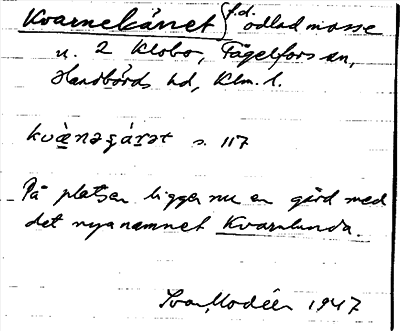 Kvarnekärret (f.d. odlad mosse
u. 2 Klobo, Fågelfors sn,
Handbörds hd, Klm. l.
kvὰ̱nəɕά̱rət s. 117
På platsen ligger nu en gård med
det nya namnet Kvarnlunda.
Ivar Modéer 1947